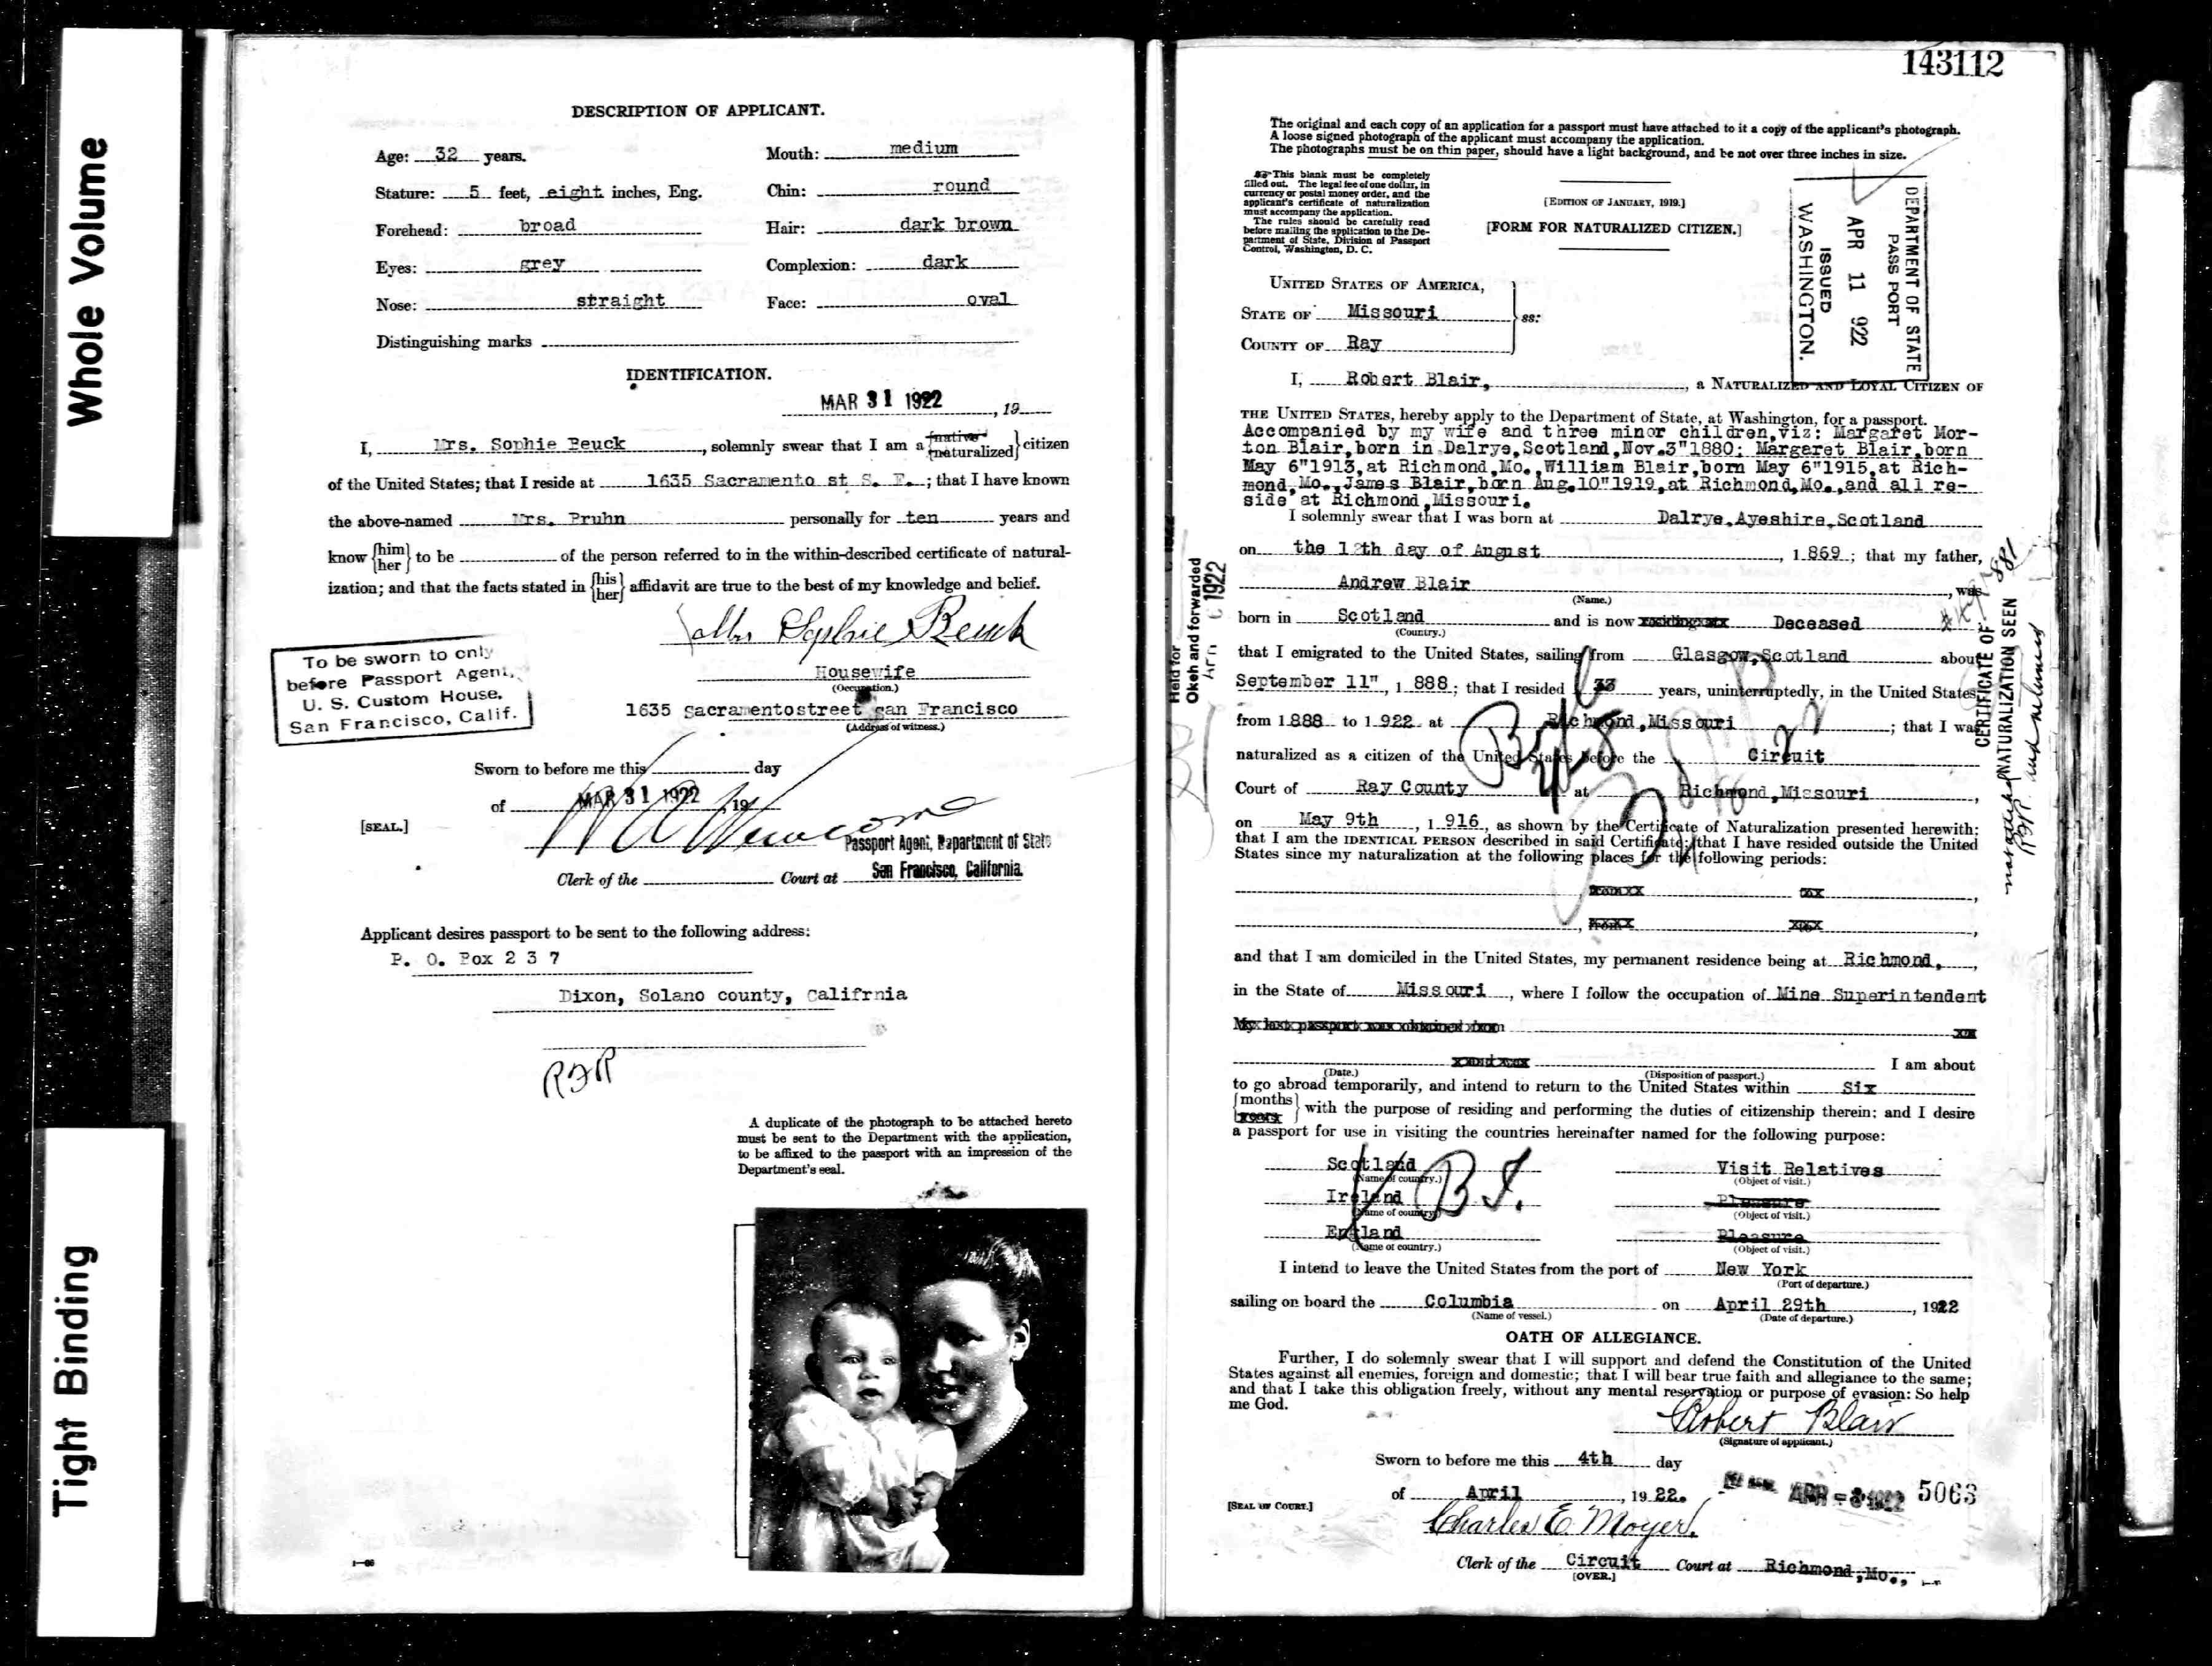 Whole Volume
Tight Binding
DESCRIPTION OF APPLICANT.
Age: 32 years.
Mouth: medium
Stature: 5 feet, eight inches, Eng.
Chin: round
Forehead: broad
Hair: dark brown
Eyes: grey
Complexion: dark
Nose: straight
Face: oval
Distinguishing marks
IDENTIFICATION.
MAR 31 1922, 19
I, Mrs. Sophie Beuck, solemnly swear that I am a {native naturalized} citizen
of the United States; that I reside at 1635 Sacramento st S. F.; that I have known
the above-named Mrs. Pruhn personally for ten years and
know {him her} to be of the person referred to in the within-described certificate of natural-
ization; and that the facts stated in {his her} affidavit are true to the best of my knowledge and belief.
Mrs Sophie Beuck
Housewife
(Occupation.)
1635 sacramentostreet san Francisco
(Address of witness.)
To be sworn to only
before Passport Agent,
U. S. Custom House,
San Francisco, Calif.
Sworn to before me this day
of MAR 31 1922 19
[SEAL.]
Passport Agent, Department of State
San Francisco, California.
Clerk of the Court at
Applicant desires passport to be sent to the following address:
P. O. Box 2 3 7
Dixon, Solano county, Califrnia
A duplicate of the photograph to be attached hereto
must be sent to the Department with the application,
to be affixed to the passport with an impression of the
Department's seal.
143112
The original and each copy of an application for a passport must have attached to it a copy of the applicant's photograph.
A loose signed photograph of the applicant must accompany the application.
The photographs must be on thin paper, should have a light background, and be not over three inches in size.
This blank must be completely
filled out. The legal fee of one dollar, in
currency or postal money order, and the
applicant's certificate of naturalization
must accompany the application.
The rules should be carefully read
before mailing the application to the De-
partment of State, Division of Passport
Control, Washington, D. C.
[EDITION OF JANUARY, 1919.]
[FORM FOR NATURALIZED CITIZEN.]
DEPARTMENT OF STATE
PASS PORT
APR 11 922
ISSUED
WASHINGTON.
UNITED STATES OF AMERICA,
STATE OF Missouri
ss:
COUNTY OF Ray
I, Robert Blair, , a NATURALIZED AND LOYAL CITIZEN OF
THE UNITED STATES, hereby apply to the Department of State, at Washington, for a passport.
Accompanied by my wife and three minor children,viz: Margaret Mor-
ton Blair,born in Dalrye,Scotland,Nov.3"1880; Margaret Blair,born
May 6"1913,at Richmond,Mo.,William Blair,born May 6"1915,at Rich-
mond,Mo.,James Blair,born Aug.10"1919,at Richmond,Mo.,and all re-
side at Richmond,Missouri.
I solemnly swear that I was born at Dalrye,Ayeshire,Scotland
on the day of August, 1869; that my father,
Andrew Blair, was
(Name.)
born in Scotland and is now Deceased
(Country.)
that I emigrated to the United States, sailing from Glasgow,Scotland about
September 11", 1888; that I resided 33 years, uninterruptedly, in the United States,
from 1888 to 1922 at Richmond,Missouri; that I was
naturalized as a citizen of the United States before the Circuit
Court of Ray County at Richmond,Missouri,
on May 9th, 1916, as shown by the Certificate of Naturalization presented herewith;
that I am the IDENTICAL PERSON described in said Certificate; that I have resided outside the United
States since my naturalization at the following places for the following periods:
and that I am domiciled in the United States, my permanent residence being at Richmond,
in the State of Missouri, where I follow the occupation of Mine Superintendent
My last passport was obtained from
I am about
(Date.) (Disposition of passport.)
to go abroad temporarily, and intend to return to the United States within Six
{months years} with the purpose of residing and performing the duties of citizenship therein; and I desire
a passport for use in visiting the countries hereinafter named for the following purpose:
Scotland Visit Relatives
(Name of country.) (Object of visit.)
Ireland Pleasure
(Name of country.) (Object of visit.)
England Pleasure
(Name of country.) (Object of visit.)
I intend to leave the United States from the port of New York
(Port of departure.)
sailing on board the Columbia on April 29th, 1922
(Name of vessel.) (Date of departure.)
OATH OF ALLEGIANCE.
Further, I do solemnly swear that I will support and defend the Constitution of the United
States against all enemies, foreign and domestic; that I will bear true faith and allegiance to the same;
and that I take this obligation freely, without any mental reservation or purpose of evasion: So help
me God.
Robert Blair
(Signature of applicant.)
Sworn to before me this 4th day
of April, 1922.
5063
[SEAL OF COURT.]
Charles E. Moyer.
Clerk of the Circuit Court at Richmond,Mo.,
[OVER.]
Held for
Okeh and forwarded
1922
CERTIFICATE OF
NATURALIZATION SEEN
and returned